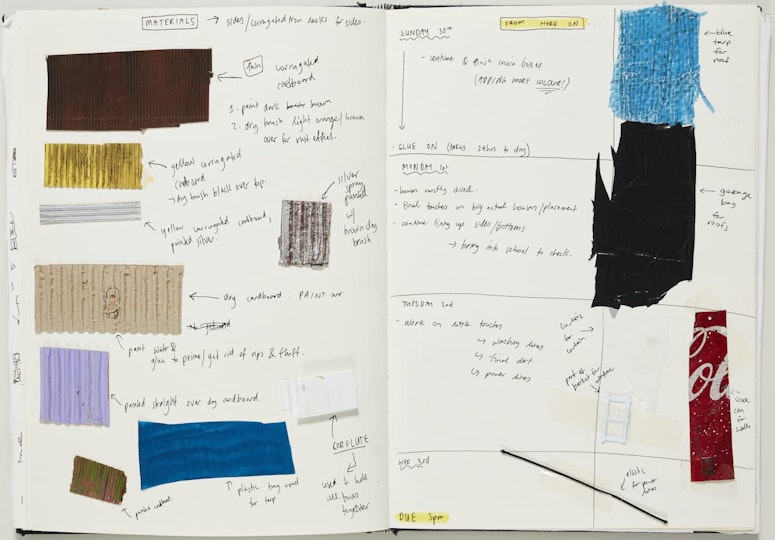 MATERIALS → sides/corrugated iron looks for sides.
thin corrugated
cardboard
1. paint dark brown
2. dry brush light orange/brown
over for rust effect.
yellow corrugated
cardboard
→ dry brush black over top.
yellow corrugated cardboard,
painted silver.
silver
spray
painted
w/
brown dry
brush
dry cardboard: PAINT over.
paint water &
glue to prime/get rid of rips & fluff.
painted straight over dry cardboard.
CORFLUTE
used to hold
all boxes
together
plastic bag used
for tarp
painted cardboard.
FROM HERE ON
SUNDAY 30th
- continue & finish main boxes
(ADDING MORE COLOUR!)
· GLUE ON (takes 24hrs to dry)
MONDAY 1st
- houses mostly dried.
- final touches on big actual houses/placement
- continue fixing up sides/bottoms
↳ bring into school to check.
TUESDAY 2nd
- work on little touches
↳ washing lines
↳ final dirt
↳ power lines
WED 3rd
DUE 3pm
blue
tarp
for
roof
garbage
bag
for
roofs
for
curtain
part of
basket for
windows
Co
coca
can
for
walls
elastic
for power
lines